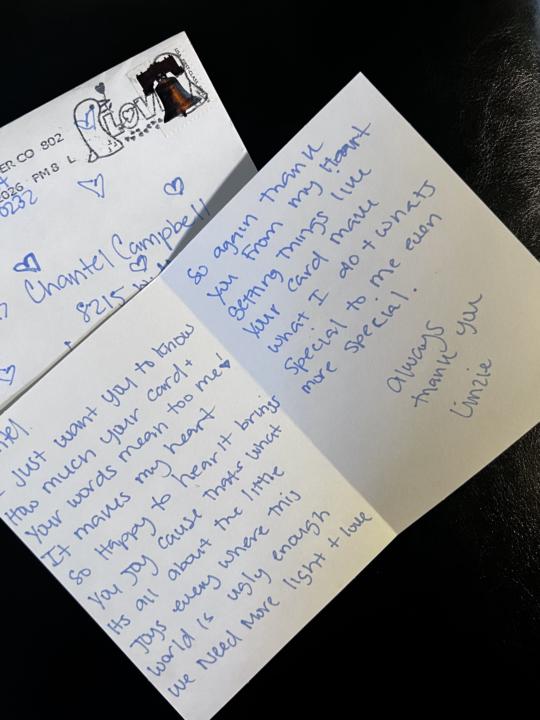 ER CO 802
2026 PM 8 L
0232
I LOVE
Chantel Campbell
8215
I Just want you to know
How much your card +
Your words mean too me!
It makes my heart
So Happy to hear it brings
you Joy cause thats what
Its all about the little
Joys every where this
world is ugly enough
we Need more light + love
So again thank
you from my Heart
getting things like
your card make
what I do + whats
special to me even
more special.
always
thank you
Linzie